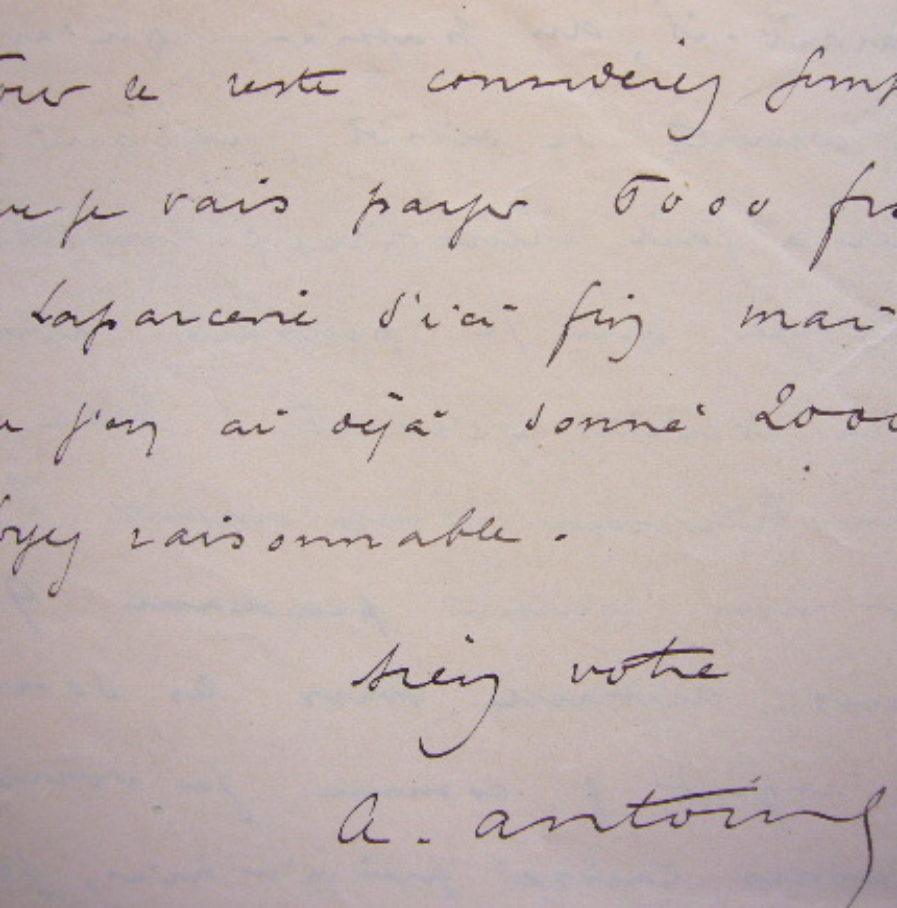 ce reste considérez simp
je vais payer 6000 frs
Laparcerie d'ici fin mar
j'en ai déjà donné 2000
Soyez raisonnable.
bien votre
A. Antoine